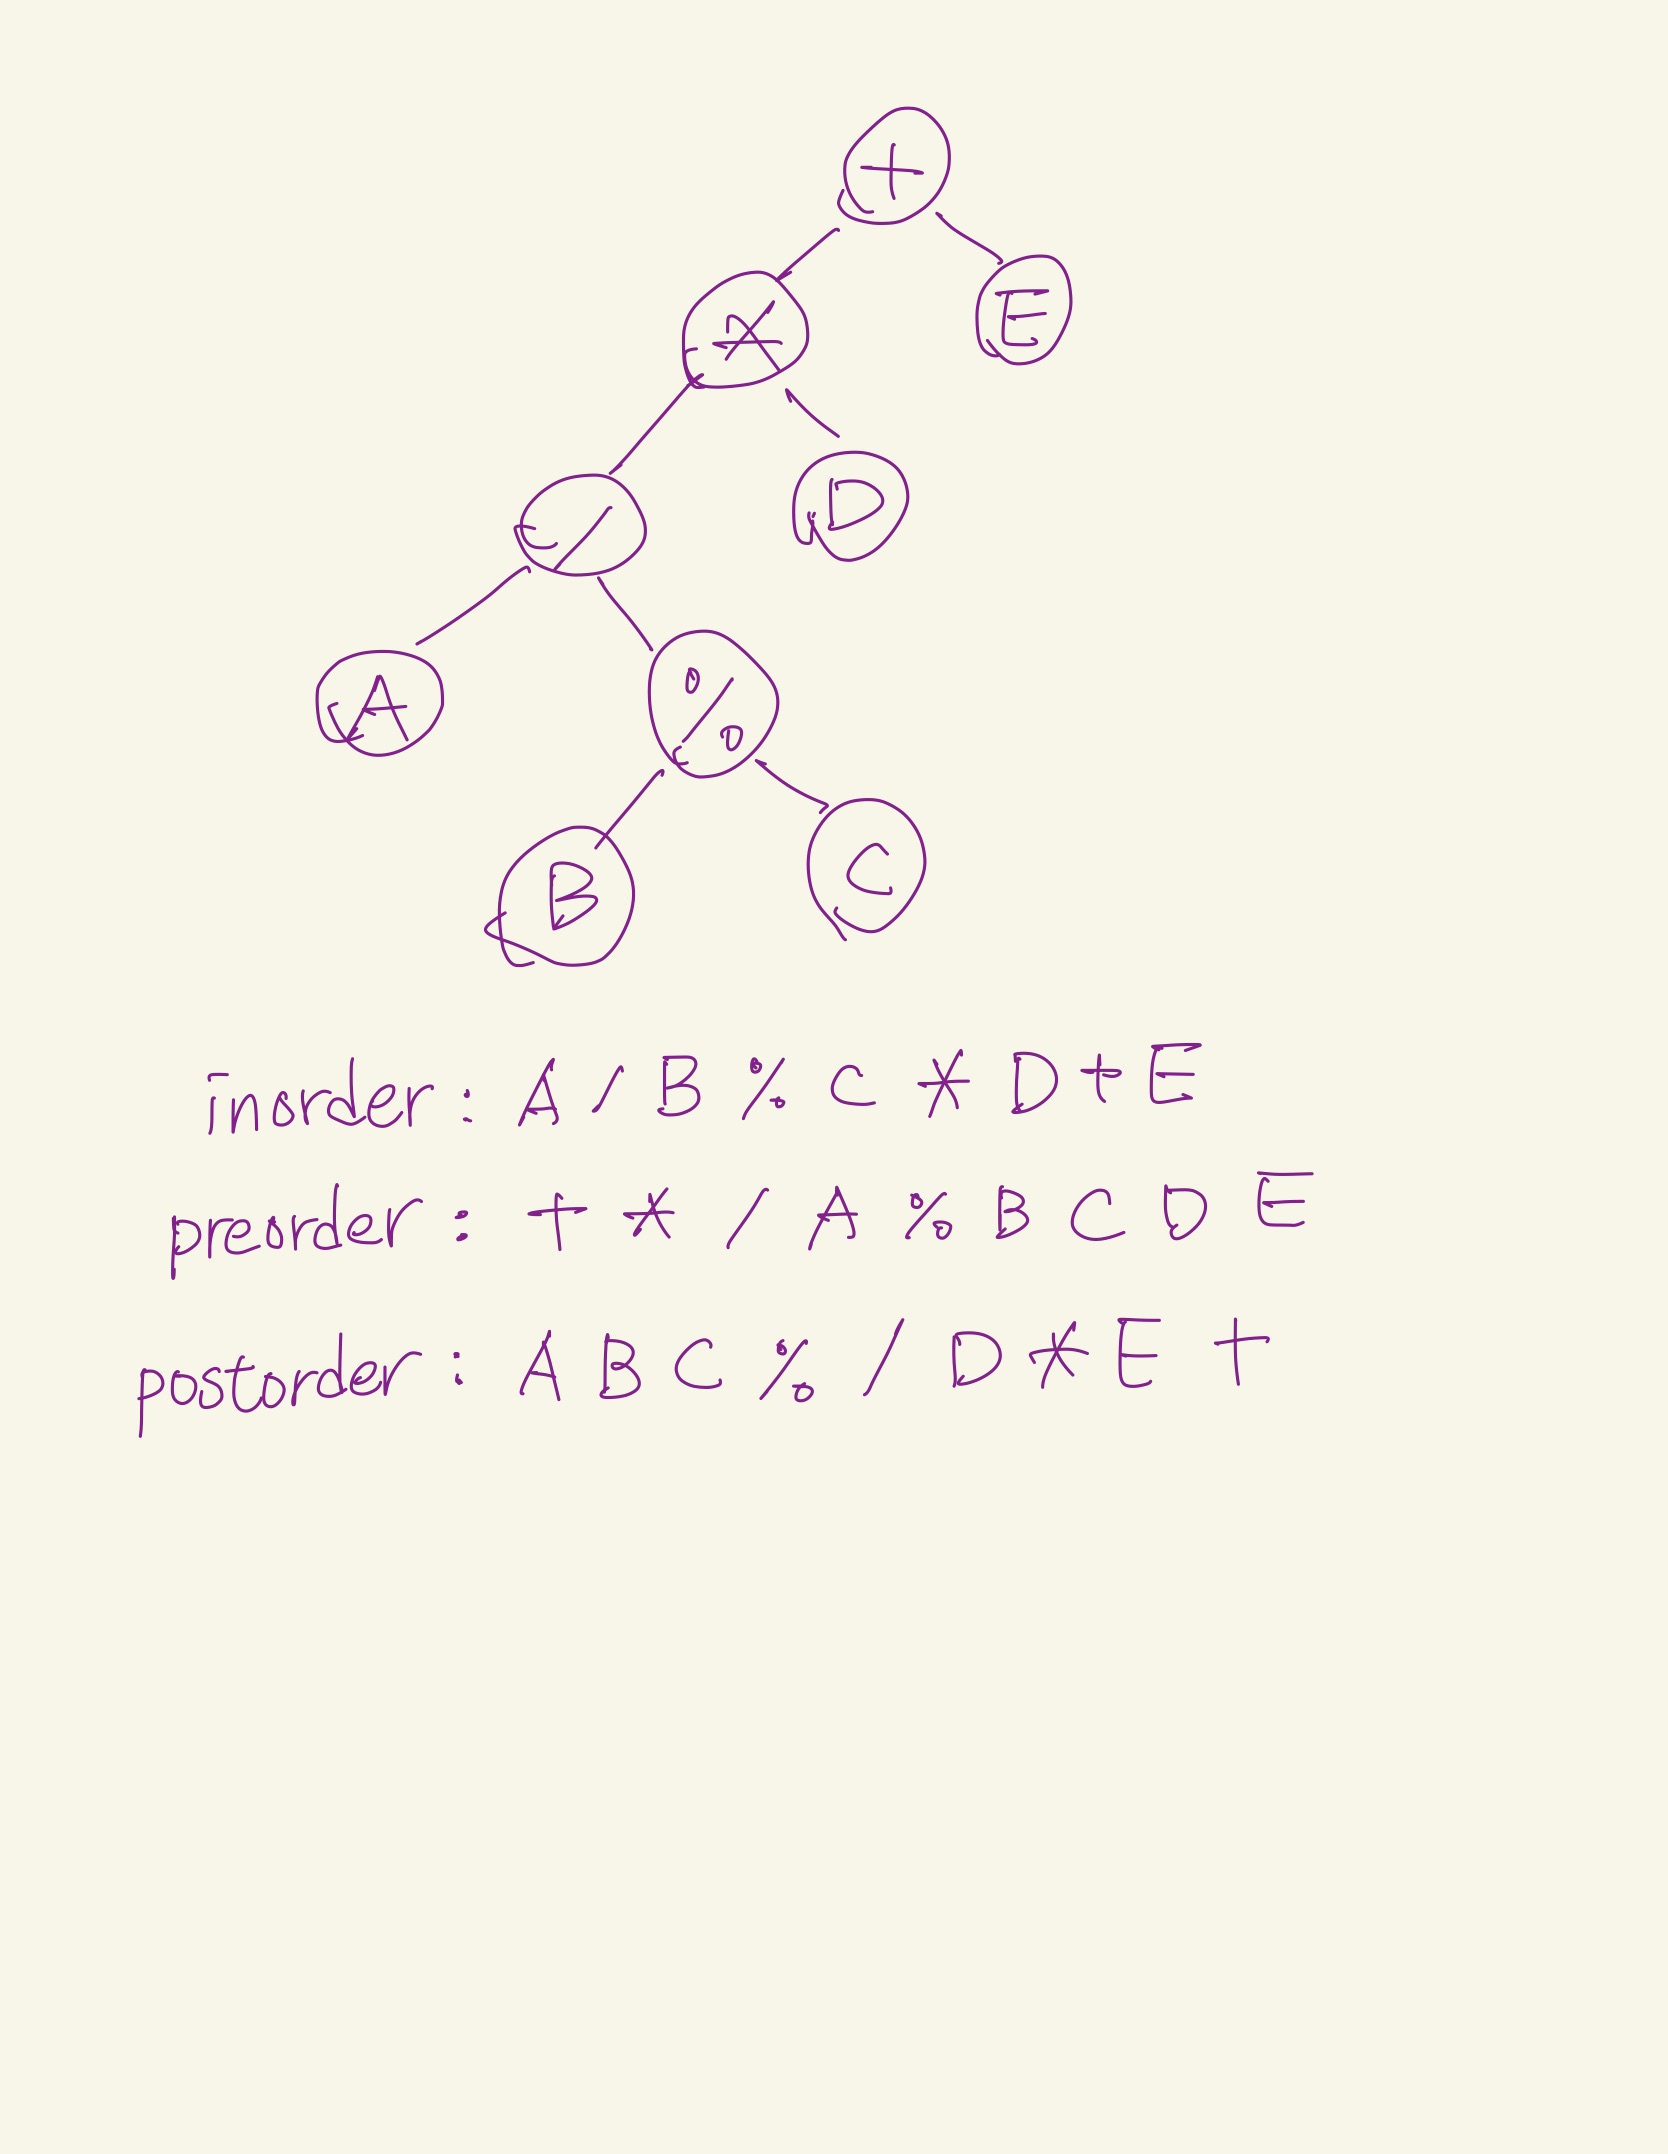 +
* E
/ D
A %
B C
inorder: A / B % C * D + E
preorder: + * / A % B C D E
postorder: A B C % / D * E +